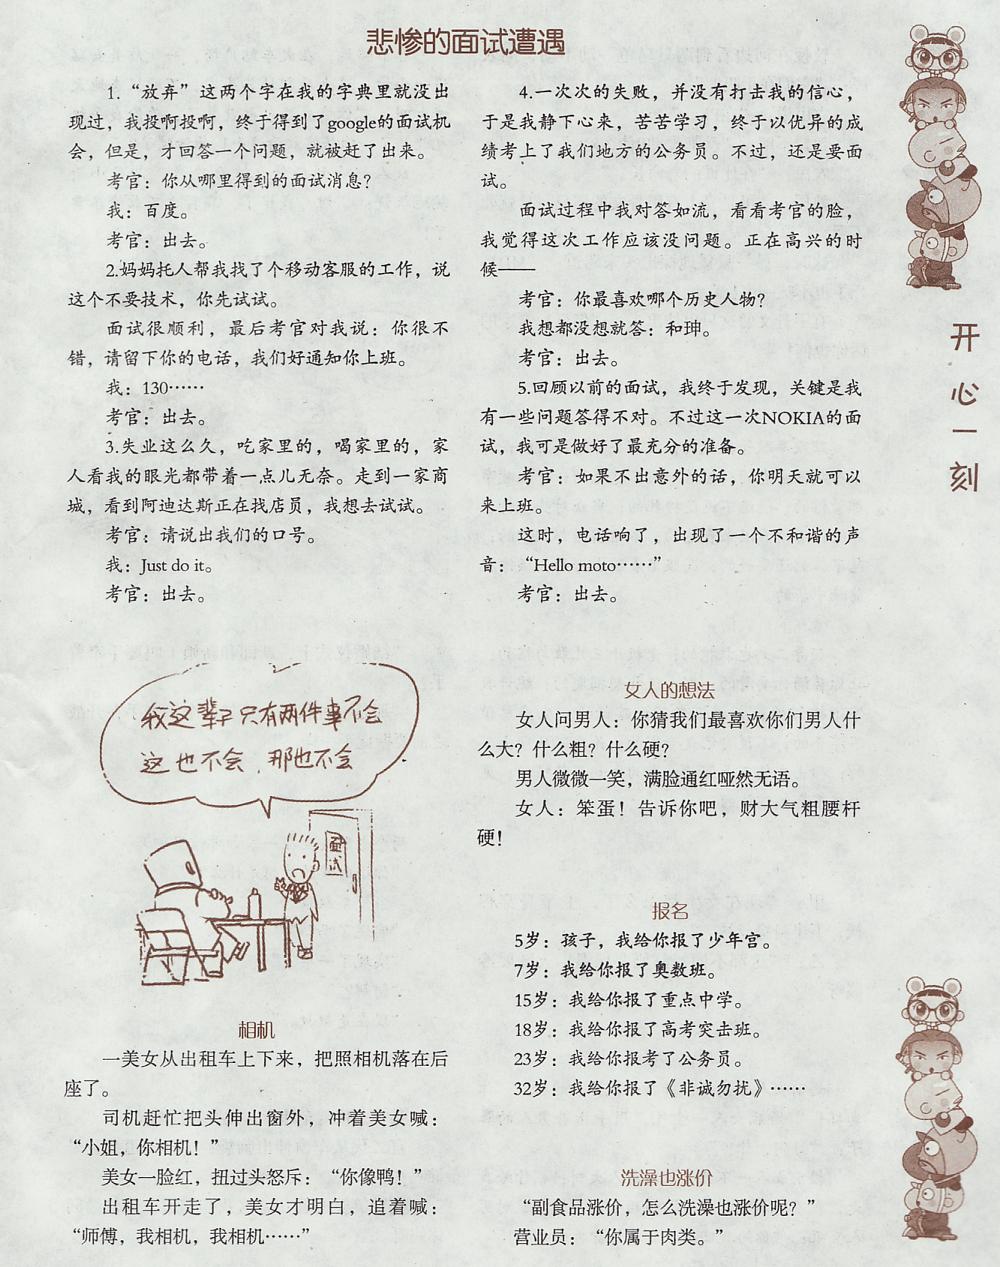 悲惨的面试遭遇
1.“放弃”这两个字在我的字典里就没出
现过，我投啊投啊，终于得到了google的面试机
会，但是，才回答一个问题，就被赶了出来。
考官：你从哪里得到的面试消息？
我：百度。
考官：出去。
2.妈妈托人帮我找了个移动客服的工作，说
这个不要技术，你先试试。
面试很顺利，最后考官对我说：你很不
错，请留下你的电话，我们好通知你上班。
我：130……
考官：出去。
3.失业这么久，吃家里的，喝家里的，家
人看我的眼光都带着一点儿无奈。走到一家商
城，看到阿迪达斯正在找店员，我想去试试。
考官：请说出我们的口号。
我：Just do it。
考官：出去。
4.一次次的失败，并没有打击我的信心，
于是我静下心来，苦苦学习，终于以优异的成
绩考上了我们地方的公务员。不过，还是要面
试。
面试过程中我对答如流，看看考官的脸，
我觉得这次工作应该没问题。正在高兴的时
候——
考官：你最喜欢哪个历史人物？
我想都没想就答：和珅。
考官：出去。
5.回顾以前的面试，我终于发现，关键是我
有一些问题答得不对。不过这一次NOKIA的面
试，我可是做好了最充分的准备。
考官：如果不出意外的话，你明天就可以
来上班。
这时，电话响了，出现了一个不和谐的声
音：“Hello moto……”
考官：出去。
开心一刻
我这辈子只有两件事不会
这也不会，那也不会
面试
相机
一美女从出租车上下来，把照相机落在后
座了。
司机赶忙把头伸出窗外，冲着美女喊：
“小姐，你相机！”
美女一脸红，扭过头怒斥：“你像鸭！”
出租车开走了，美女才明白，追着喊：
“师傅，我相机，我相机……”
女人的想法
女人问男人：你猜我们最喜欢你们男人什
么大？什么粗？什么硬？
男人微微一笑，满脸通红哑然无语。
女人：笨蛋！告诉你吧，财大气粗腰杆
硬！
报名
5岁：孩子，我给你报了少年宫。
7岁：我给你报了奥数班。
15岁：我给你报了重点中学。
18岁：我给你报了高考突击班。
23岁：我给你报考了公务员。
32岁：我给你报了《非诚勿扰》……
洗澡也涨价
“副食品涨价，怎么洗澡也涨价呢？”
营业员：“你属于肉类。”